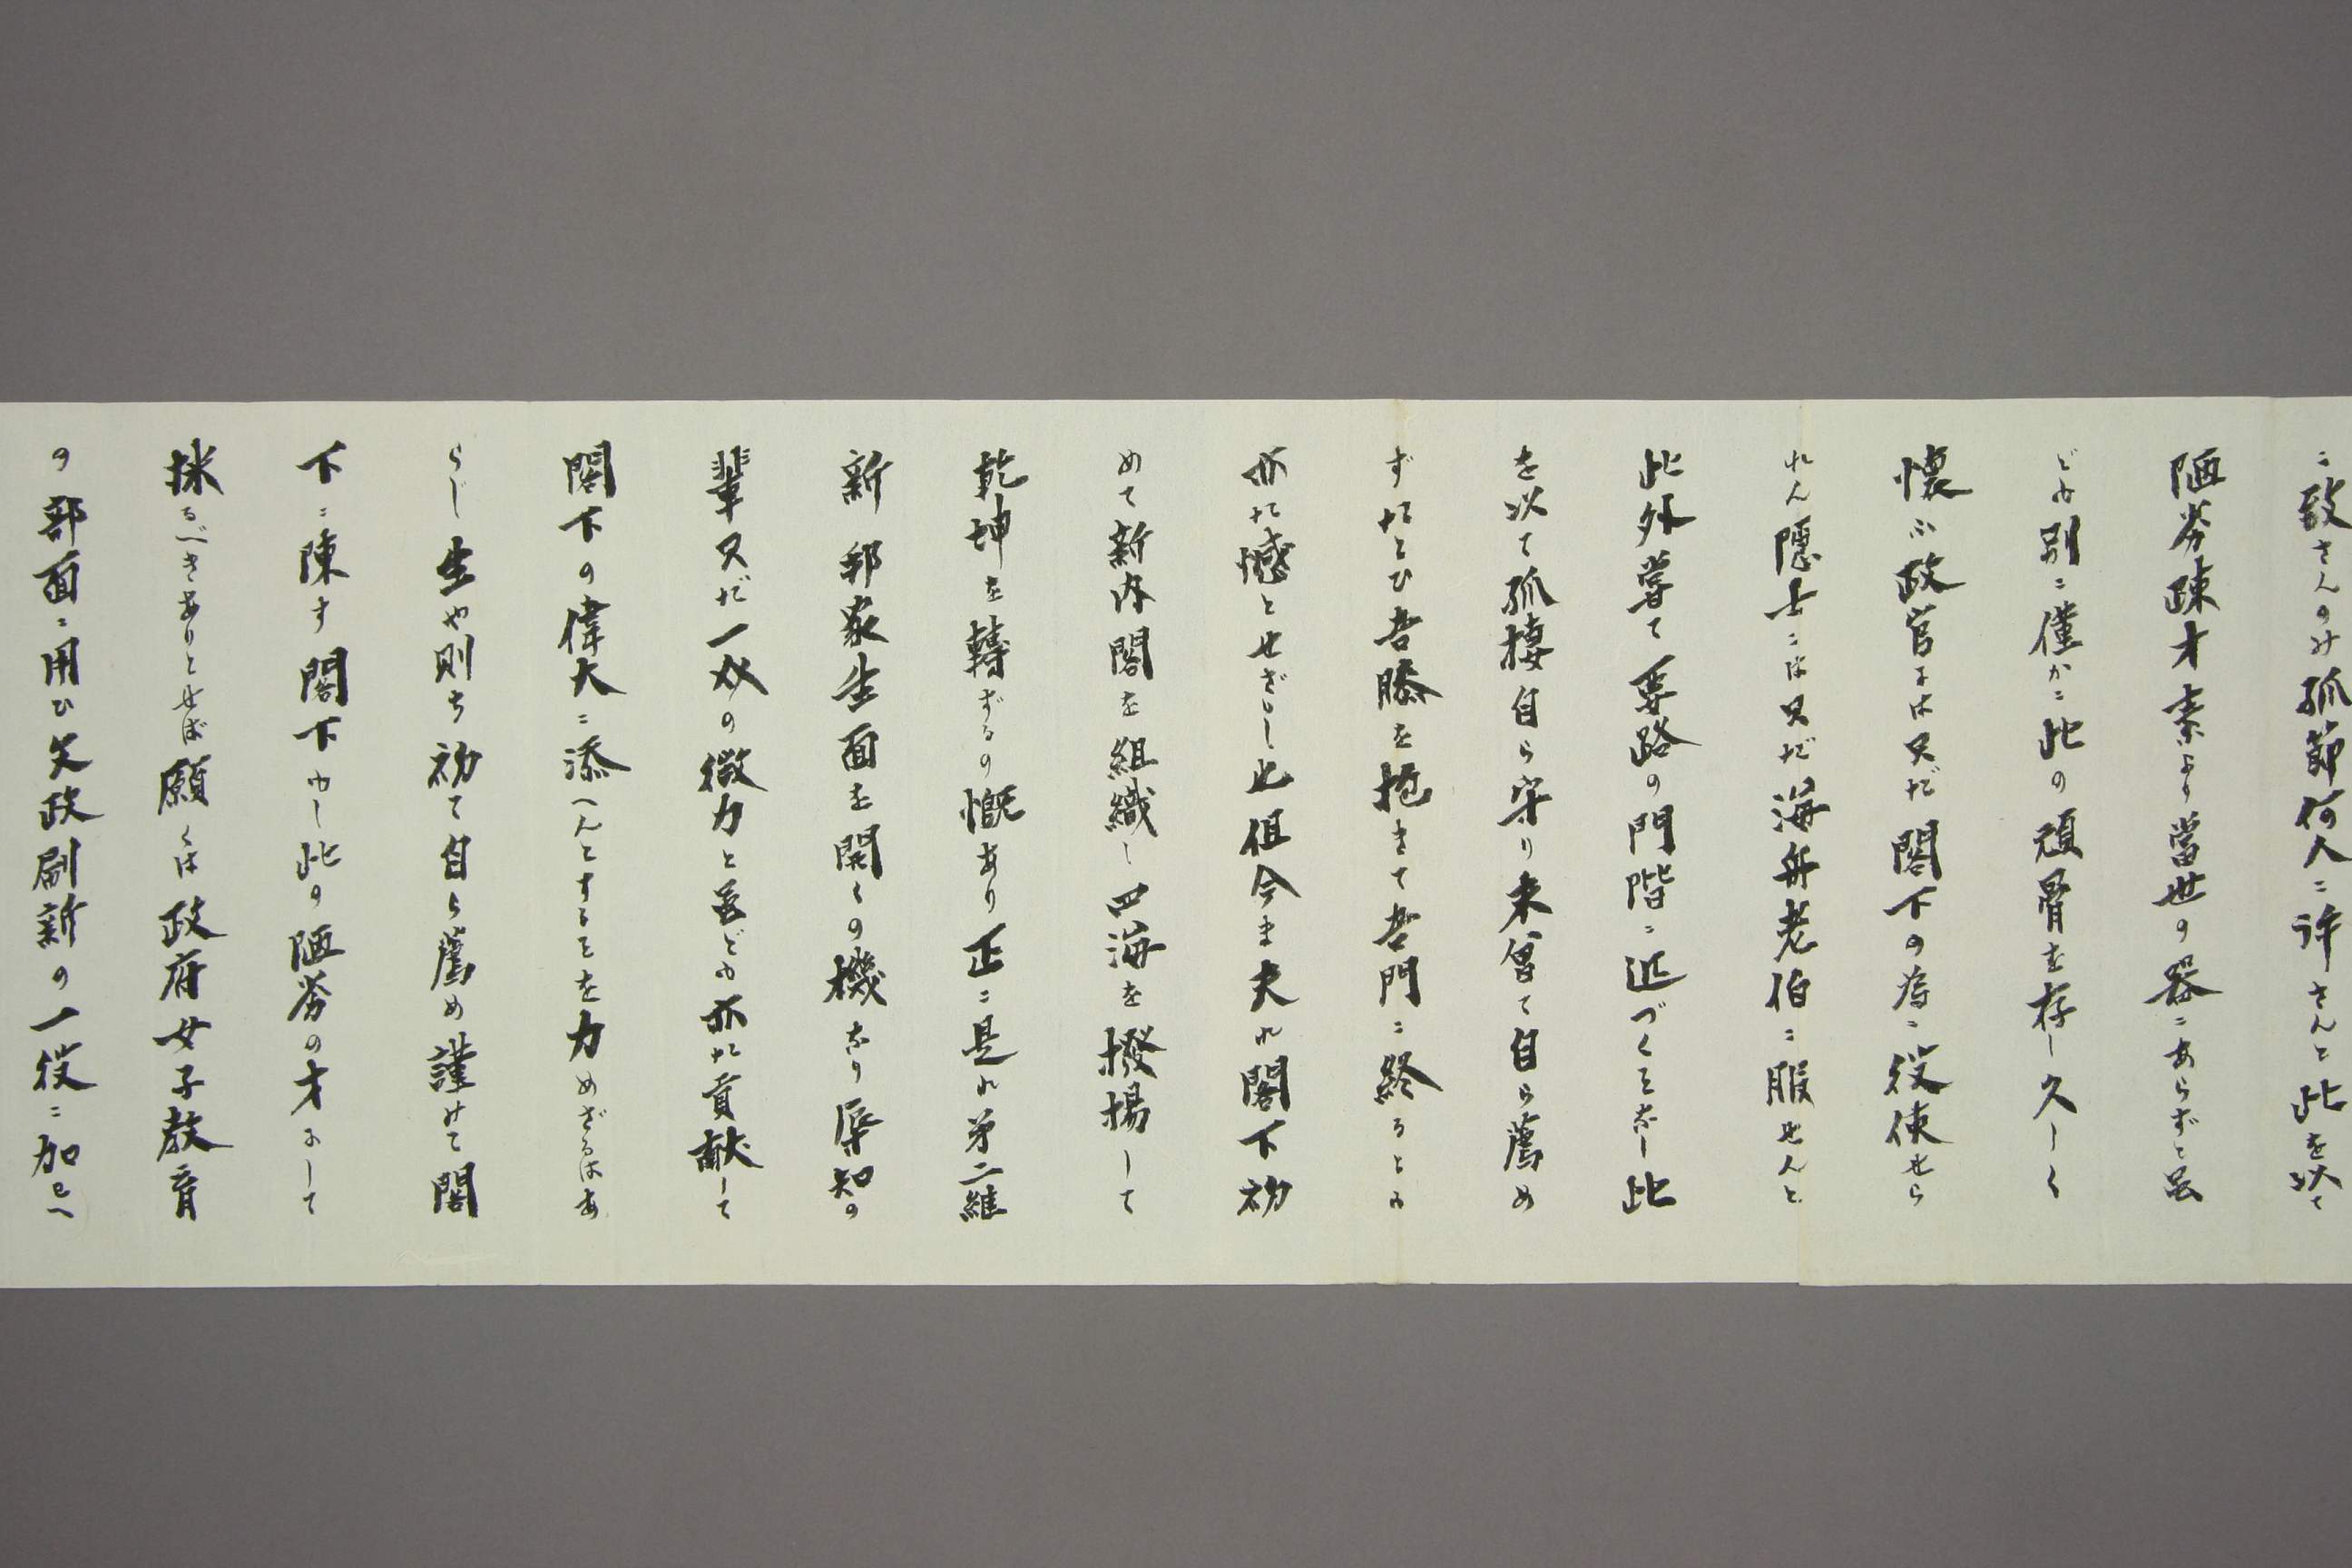 ニ致さんのみ孤節何人ニ許さんと此を以て
陋劣疎才素より當世の器ニあらずと虽
ども別ニ僅かニ此の頑骨を存し久しく
懐ふ政官には只だ閣下の為ニ役使せら
れん隠士ニは只だ海舟老伯ニ服せんと
此外嘗て要路の門階ニ近づくことなし此
を以て孤棲自ら守り未曾て自ら薦め
ずたとひ吾膝を抱きて吾門ニ終るとも
亦た憾とせざりし也但今ま夫れ閣下初
めて新内閣を組織し四海を撥揚して
乾坤を轉ずるの慨あり正ニ是れ第二維
新邦家生面を開くの機なり辱知の
輩只だ一双の微力と虽ども亦た貢献して
閣下の偉大ニ添へんとすることを力めざるはあ
らじ生や則ち初て自ら薦め謹みて閣
下ニ陳す閣下もし此の陋劣の才にして
採るべきありとせば願くは政府女子教育
の部面ニ用ひ文政刷新の一役ニ加へ